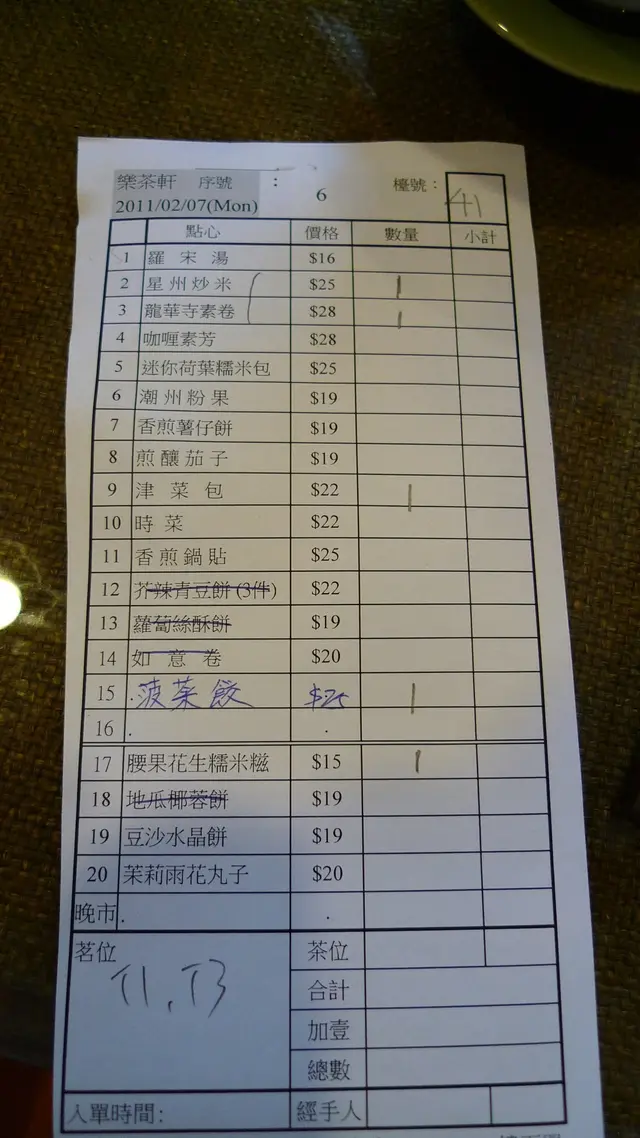 樂茶軒 序號 : 6 檯號： 41
2011/02/07(Mon)
點心 價格 數量 小計
1 羅宋湯 $16
2 星州炒米 $25 1
3 龍華寺素卷 $28 1
4 咖喱素芳 $28
5 迷你荷葉糯米包 $25
6 潮州粉果 $19
7 香煎薯仔餅 $19
8 煎釀茄子 $19
9 津菜包 $22 1
10 時菜 $22
11 香煎鍋貼 $25
12 芥辣青豆餅 (3件) $22
13 蘿蔔絲酥餅 $19
14 如意卷 $20
15 .菠菜餃 $25 1
16 . .
17 腰果花生糯米糍 $15 1
18 地瓜椰蓉餅 $19
19 豆沙水晶餅 $19
20 茉莉雨花丸子 $20
晚市 . .
茗位 茶位
T1, T3
合計
加壹
總數
入單時間: 經手人